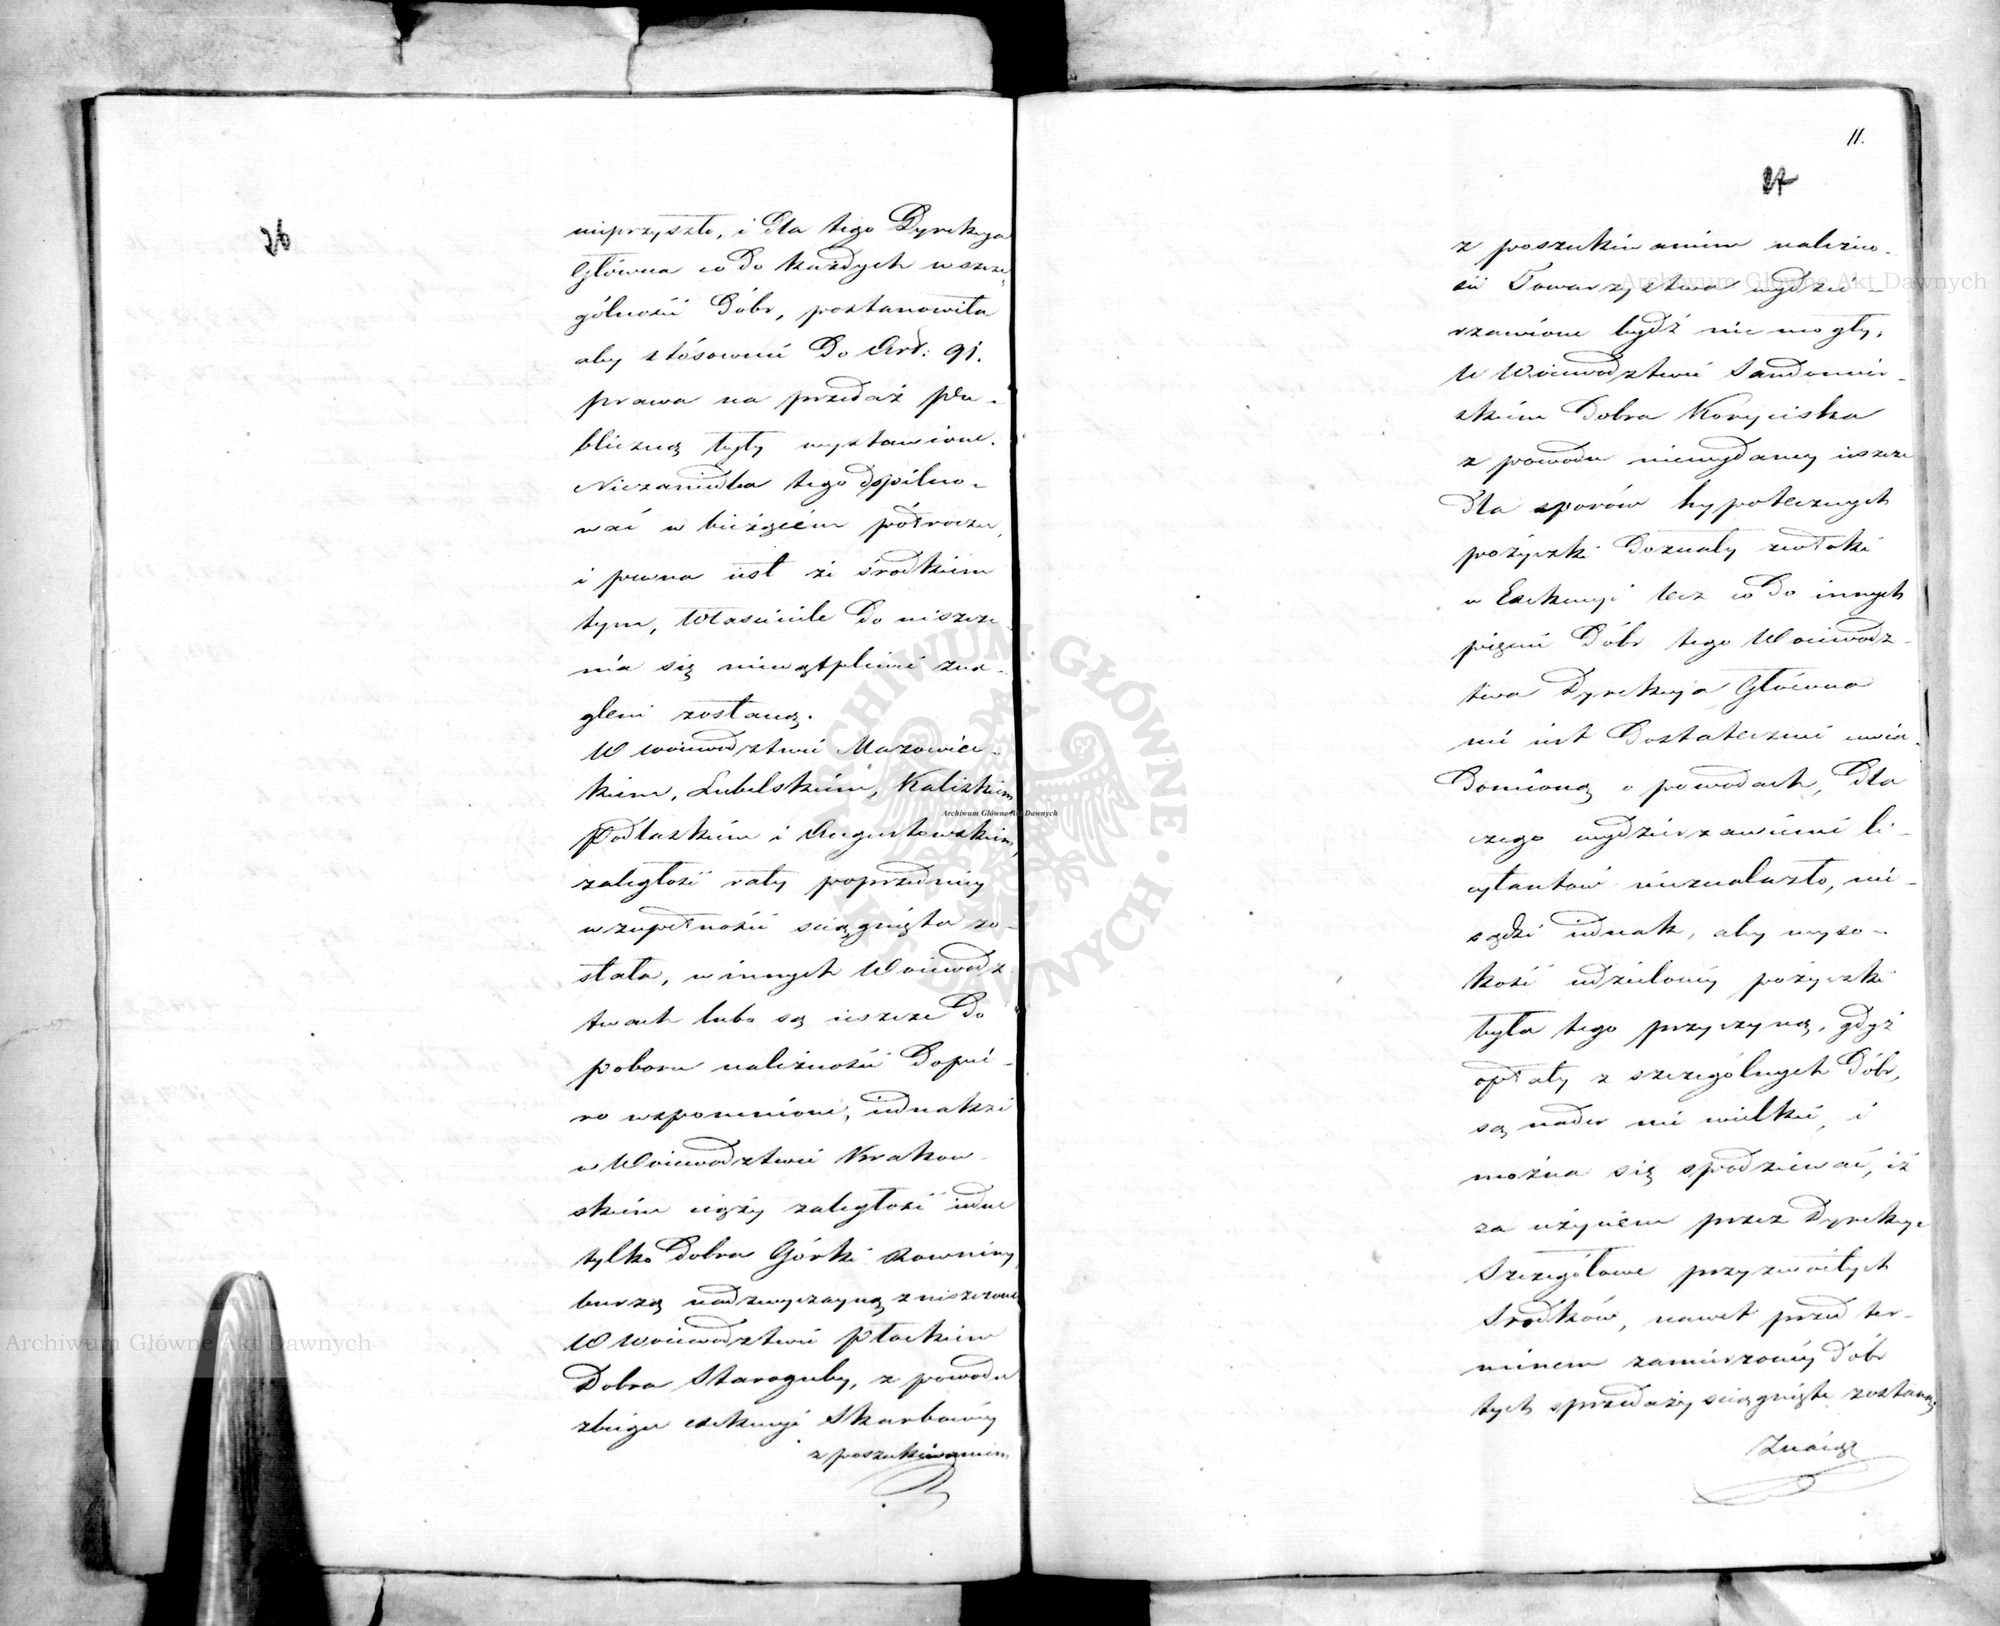 26
nieprzyszło, i dla tego Dyrekcya
Główna co do każdych w szcze-
gólności Dóbr, postanowiła
aby stósownie do Art: 91.
prawa na przedaż pu-
bliczną były wystawione.
Niezaniedba tego dopilno-
wać w bieżącém półroczu,
i pewna iest że środkiem
tym, Właściciele do uiszcze-
nia się niewątpliwie zna-
gleni zostaną.
W Woiewodztwie Mazowiec-
kiem, Lubelskiém, Kaliskiem
Podlaskiém i Augustowskiém,
zaległość raty poprzedniey
w zupełności sciągnięta zo-
stała, w innych Woiewodz-
twach lubo są ieszcze do
poboru należności dopie-
ro wspomnione, iednakże
w Woiewodztwie Krakow-
skiém ciąży zaległość iedne
tylko Dobra Górki
burzą nadzwyczayną zniszczone
W Woiewodztwie Płockiem
Dobra Staroguby, z powodu
zbiegu exekucyi Skarbowéy
z poszukiwaniem
11.
27
z poszukiwaniem należno-
ści Towarzystwa wydzier-
rzawione bydź nie mogły.
W Woiewodztwie Sandomier-
skiém Dobra Koryciska
z powodu niewydaney ieszcze
dla sporów hypotecznych
pożyczki doznały zwłoki
w Exekucyi lecz co do innych
pięciu Dóbr tego Woiewodz-
twa Dyrekcya Główna
nie iest dostatecznie uwia-
domioną o powodach, dla
czego wydzierzawienie li-
cytantów nieznalazło, nie-
sądzi iednak, aby wyso-
kość udzieloney pożyczki
była tego przyczyną, gdyż
opłaty z szczególnych Dóbr,
są nader nie wielkie, i
można się spodziewać, iż
za użyciem przez Dyrekcye
Szczegółowe przyzwoitych
Srodków, nawet przed ter-
minem zamierzonéy Dóbr
tych sprzedaży sciągnięte zostaną.
Znaiąc
Archiwum Główne Akt Dawnych
Archiwum Główne Akt Dawnych
Archiwum Główne Akt Dawnych
ARCHIWUM GŁÓWNE AKT DAWNYCH